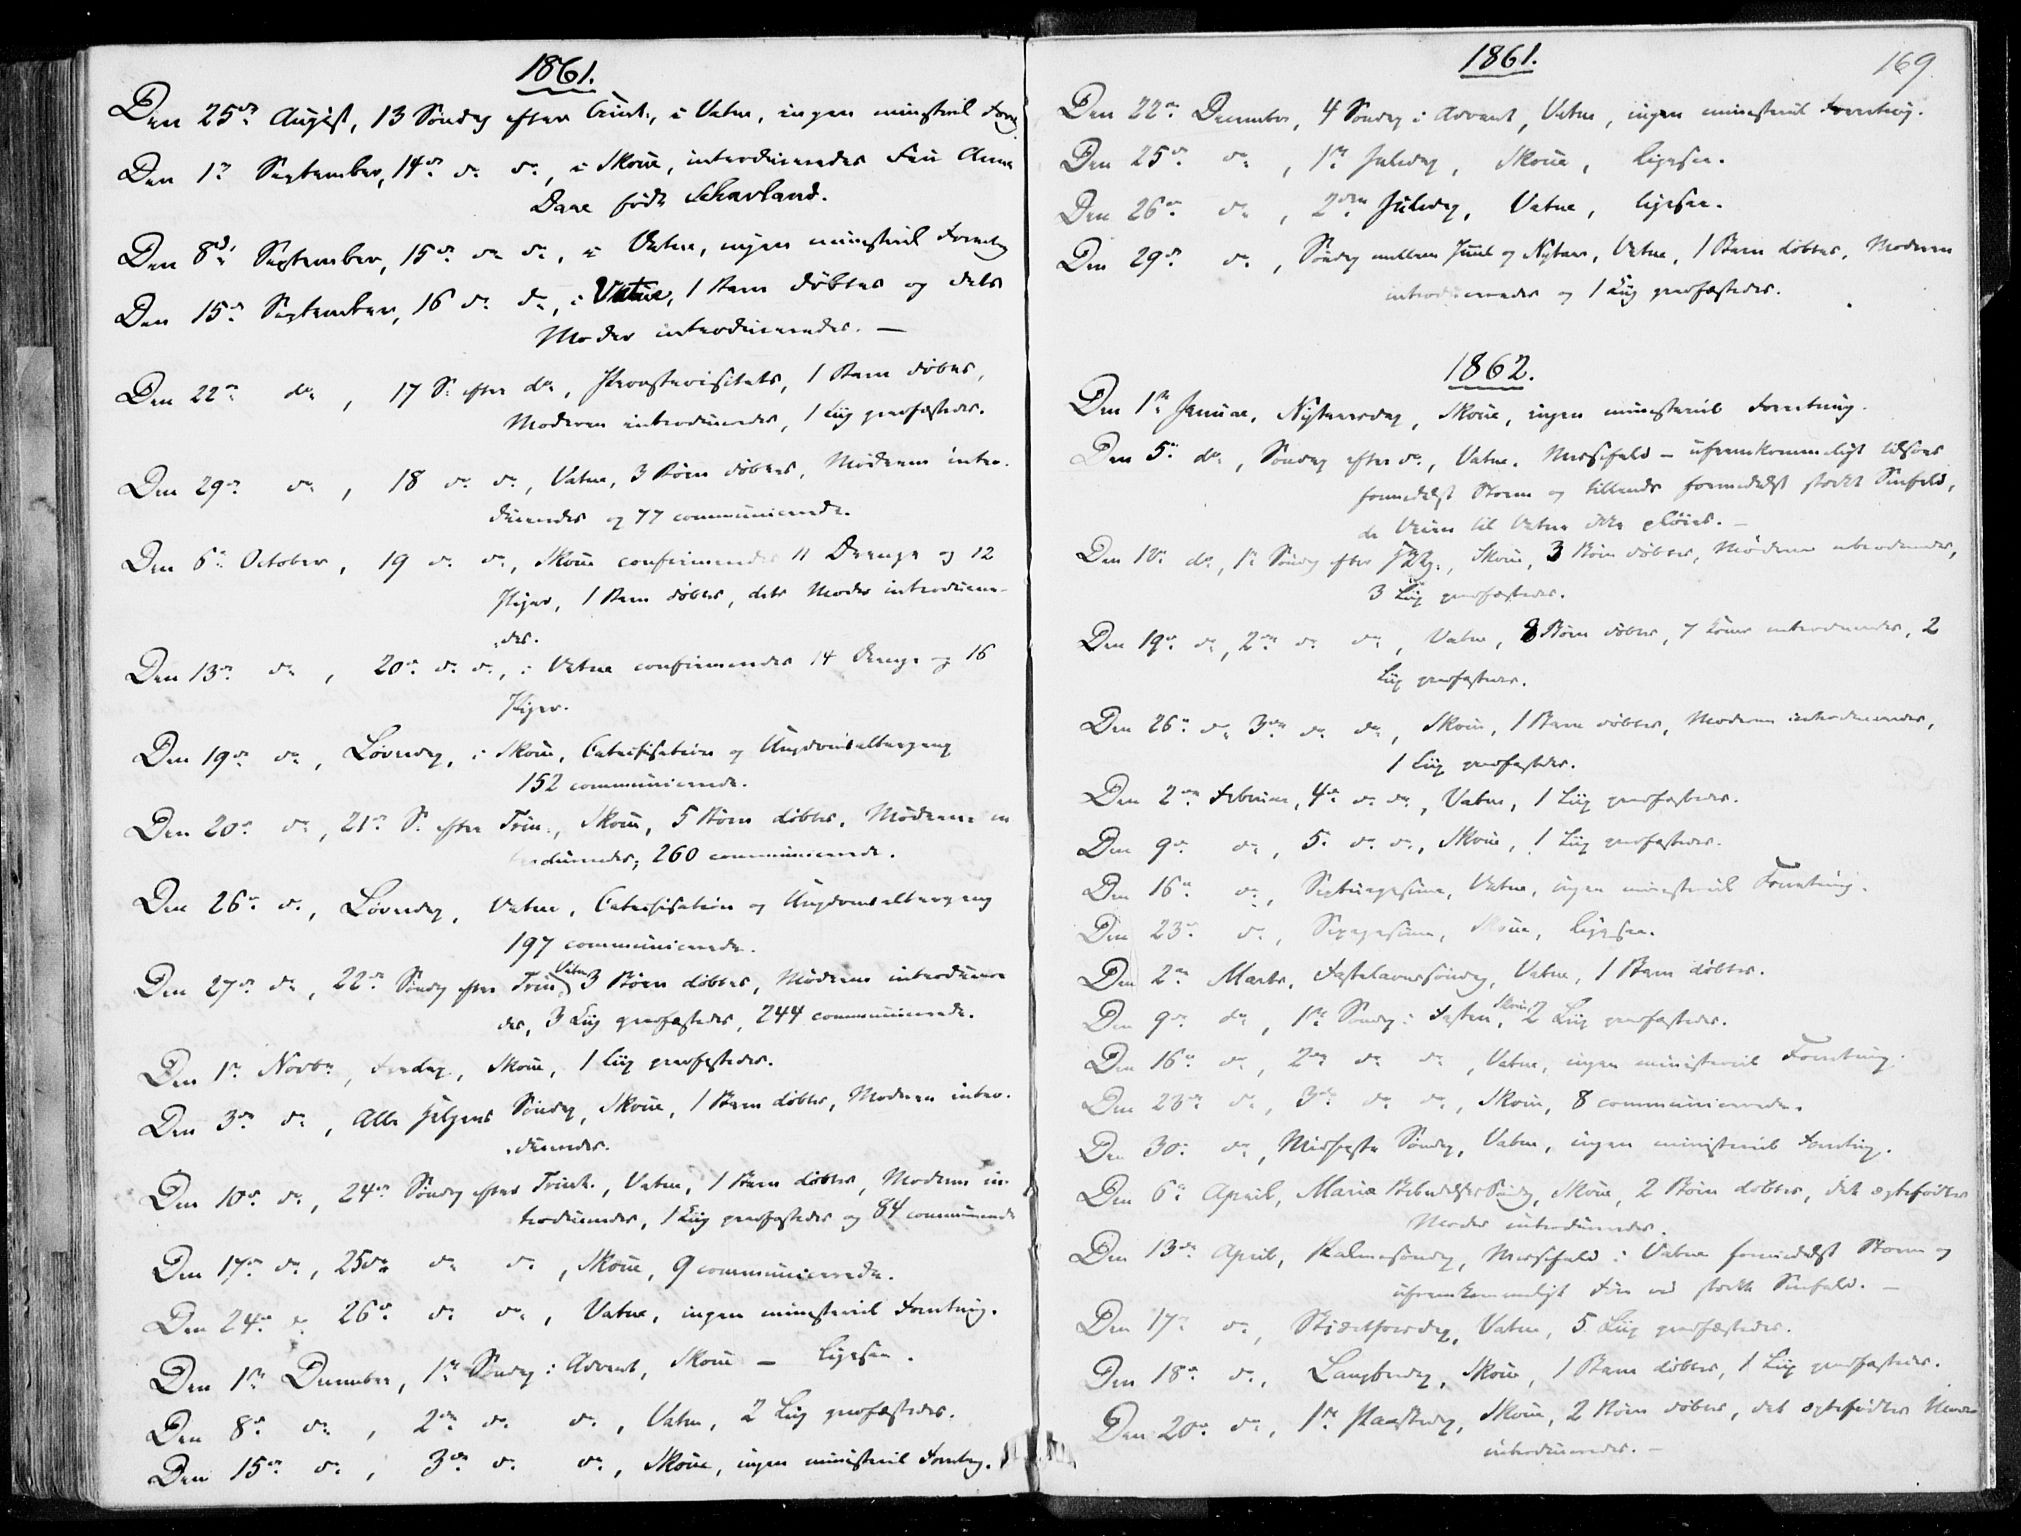 1861.
Den 25de August, 13 Søndag efter Trinit., i Vatne, ingen ministeriel Forretng
Den 1ste September, 14de do do, i Skoue, introduceredes Fru Anna
Daae født Schavland.
Den 8de September, 15de do do, i Vatne, ingen ministeriel Forretng
Den 15de September, 16 do do, i Vatne, 1 Barn døbtes og dets
Moder introduceredes. —
Den 22de do, 17 S. efter do, Provstevisitats, 1 Barn døbtes,
Moderen introduceredes, 1 Liig jordfæstedes.
Den 29de do, 18 do do, Vatne, 3 Børn døbtes, Mødrene intro-
duceredes og 77 communicerede.
Den 6te October, 19 do do, Skoue confirmeredes 11 Drenge og 12
Piger, 1 Barn døbtes, dets Moder introducere-
des.
Den 13de do, 20de do do, i Vatne confirmeredes 14 Drenge og 16
Piger.
Den 19de do, Løverdag, i Skoue, Catechisation og Ungdomsaltergang
152 communicerede.
Den 20de do, 21de S. efter Trin., Skoue, 5 Børn døbtes, Mødrene in
troduceredes; 260 communicerede.
Den 26de do, Løverdag, Vatne, Catechisation og Ungdomsaltergang
197 communicerede.
Den 27de do, 22de Søndag efter Trin Vatne 3 Børn døbtes, Mødrene introducere
des, 3 Liig jordfæstedes, 244 communicerede.
Den 1ste Novbr, Fredag, Skoue, 1 Liig jordfæstedes.
Den 3de do, Alle Helgens Søndag, Skoue, 1 Barn døbtes, Moderen intro-
duceredes.
Den 10de do, 24de Søndag efter Trinit., Vatne, 1 Barn døbtes, Moderen in-
troduceredes, 1 Liig jordfæstedes og 84 communicerede
Den 17de do, 25de do do, Skoue, 9 communicerede.
Den 24de do 26de do do, Vatne, ingen ministeriel Forretning.
Den 1ste December, 1ste Søndag i Advent, Skoue — ligesaa.
Den 8de do, 2den do do, Vatne, 2 Liig jordfæstedes.
Den 15de do, 3de do do, Skoue, ingen ministeriel Forretng.
1861.
169
Den 22de December, 4 Søndag i Advent, Vatne, ingen ministeriel Forretning.
Den 25de do, 1ste Juledag, Skoue, ligesaa.
Den 26de do, 2den Juledag, Vatne, ligesaa.
Den 29de do, Søndag mellem Juul og Nytaar, Vatne, 1 Barn døbtes, Moderen
introduceredes og 1 Liig jordfæstedes.
1862.
Den 1ste Januar, Nytaarsdag, Skoue, ingen ministeriel Forretning.
Den 5te do, Søndag efter do, Vatne. Messefald — ufremkommeligt tilsøes
formedelst Storm og tillands formedelst stærkt Sneefald,
da Veien til Vatne ikke pløies. —
Den 12te do, 1ste Søndag efter H3Kg., Skoue, 3 Børn døbtes, Mødrene introduceredes,
3 Liig jordfæstedes.
Den 19de do, 2den do do, Vatne, 8 Børn døbtes, 7 Koner introduceredes, 2
Liig jordfæstedes.
Den 26de do 3die do do, Skoue, 1 Barn døbtes, Moderen introduceredes,
1 Liig jordfæstedes.
Den 2den Februar, 4de do do, Vatne, 1 Liig jordfæstedes.
Den 9de do, 5te do do, Skoue, 1 Liig jordfæstedes.
Den 16de do, Septuagesima, Vatne, ingen ministeriel Forretning.
Den 23de do, Sexagesima, Skoue, ligesaa.
Den 2den Marts, Fastelavnssøndag, Vatne, 1 Barn døbtes.
Den 9de do, 1ste Søndag i Fasten, Skoue 2 Liig jordfæstedes.
Den 16de do, 2den do do, Vatne, ingen ministeriel Forretning.
Den 23de do, 3die do do, Skoue, 8 communicerede.
Den 30te do, Midfaste Søndag, Vatne, ingen ministeriel Forretng.
Den 6te April, Mariæ Bebudelses Søndag, Skoue, 2 Børn døbtes, det ægtefødtes
Moder introduceredes.
Den 13de April, Palmesøndag, Messefald i Vatne formedelst Storm og
ufremkommeligt Føre ved stærkt Sneefald. —
Den 17de do, Skjærthorsdag, Vatne, 5 Liig jordfæstedes.
Den 18de do, Langfredag, Skoue, 1 Barn døbtes, 1 Liig jordfæstedes.
Den 20de do, 1ste Paaskedag, Skoue, 2 Børn døbtes, det ægtefødtes Moder
introduceredes. —